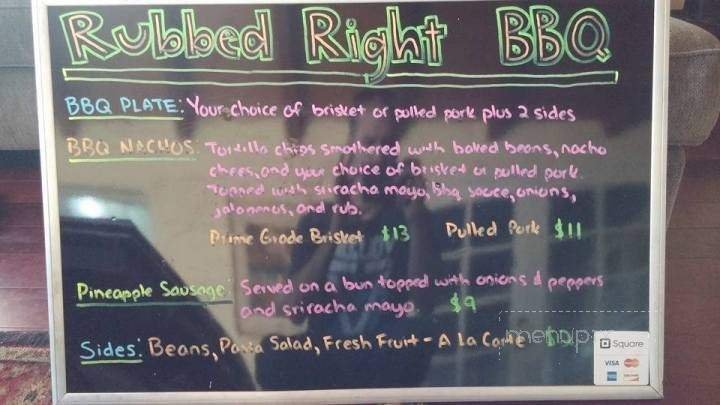 Rubbed Right BBQ
BBQ PLATE: Your choice of brisket or pulled pork plus 2 sides
BBQ NACHOS: Tortilla chips smothered with baked beans, nacho
chees, and your choice of brisket or pulled pork.
Topped with sriracha mayo, bbq sauce, onions,
jalapenos, and rub.
Prime Grade Brisket $13 Pulled Pork $11
Pineapple Sausage: Served on a bun topped with onions & peppers
and sriracha mayo. $9
Sides: Beans, Pasta Salad, Fresh Fruit - A La Carte
menupix
Square
VISA